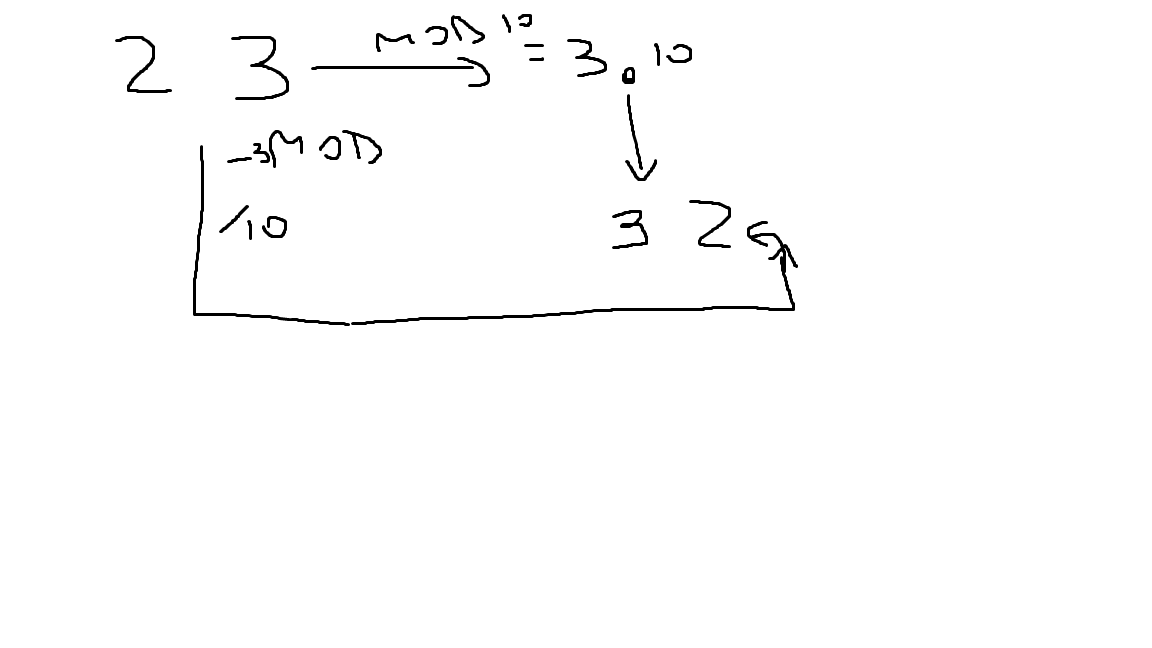 2 3 MOD 10 = 3 . 10
-3 MOD
/10 3 2